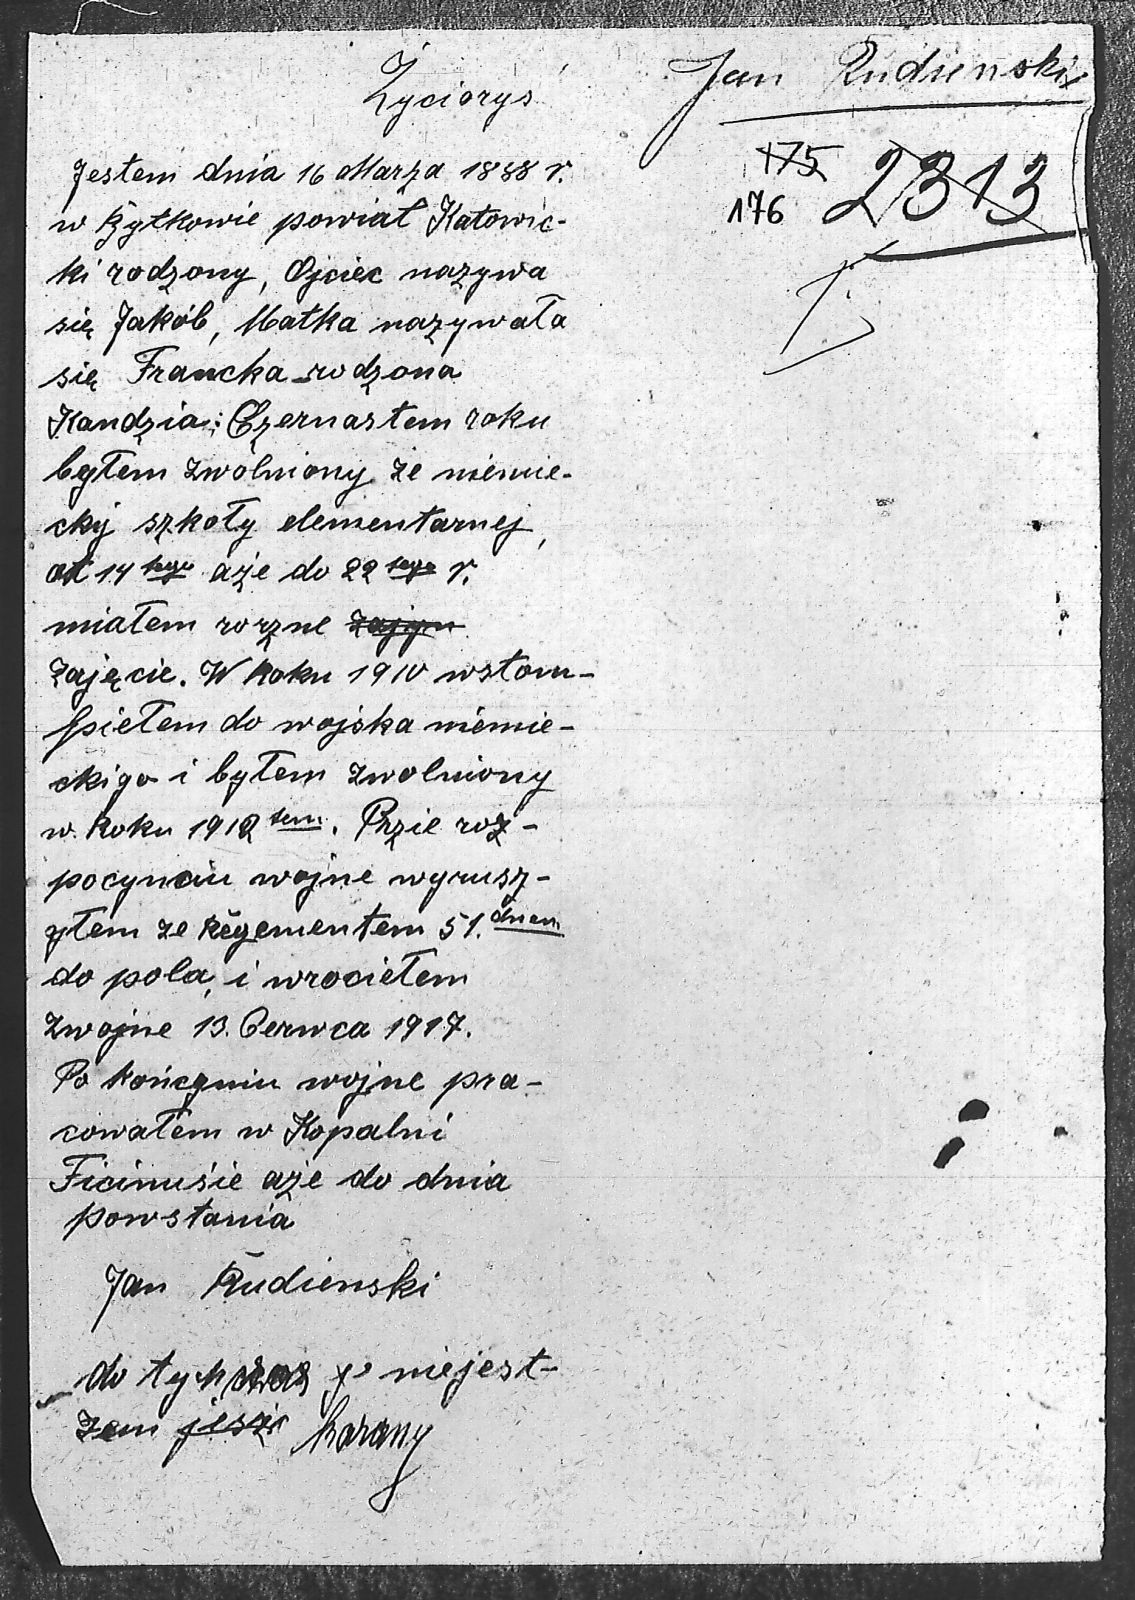 Życiorys
Jan Rudienski
175
176
2313
Jestem dnia 16 Marza 1888 r.
w Bytkowie powiat Katowic-
ki rodzony, Ojciec nazywa
się Jakób, Matka nazywała
się Francka rodzona
Kandzia; Czernastem roku
byłem zwólniony ze niemie-
ckij szkoły elementarnej,
ot 14 tego aże do 22 tego r.
miałem rorzne zajęn
zajęcie. W Roku 1910 wstom-
piełem do wojska niemie-
ckigo i byłem zwolniony
w Roku 1912 tem. Przie roz-
pocynciu wojne wyrusz-
ytem ze Regementem 51. dnem
do pola, i wrociełem
zwojne 13. Cerwca 1917.
Po kończniu wojne pra-
cowałem w Kopalni
Ficinuśie aże do dnia
powstania
Jan Rudienski
do tych czas ja niejest-
zem jeszc karany